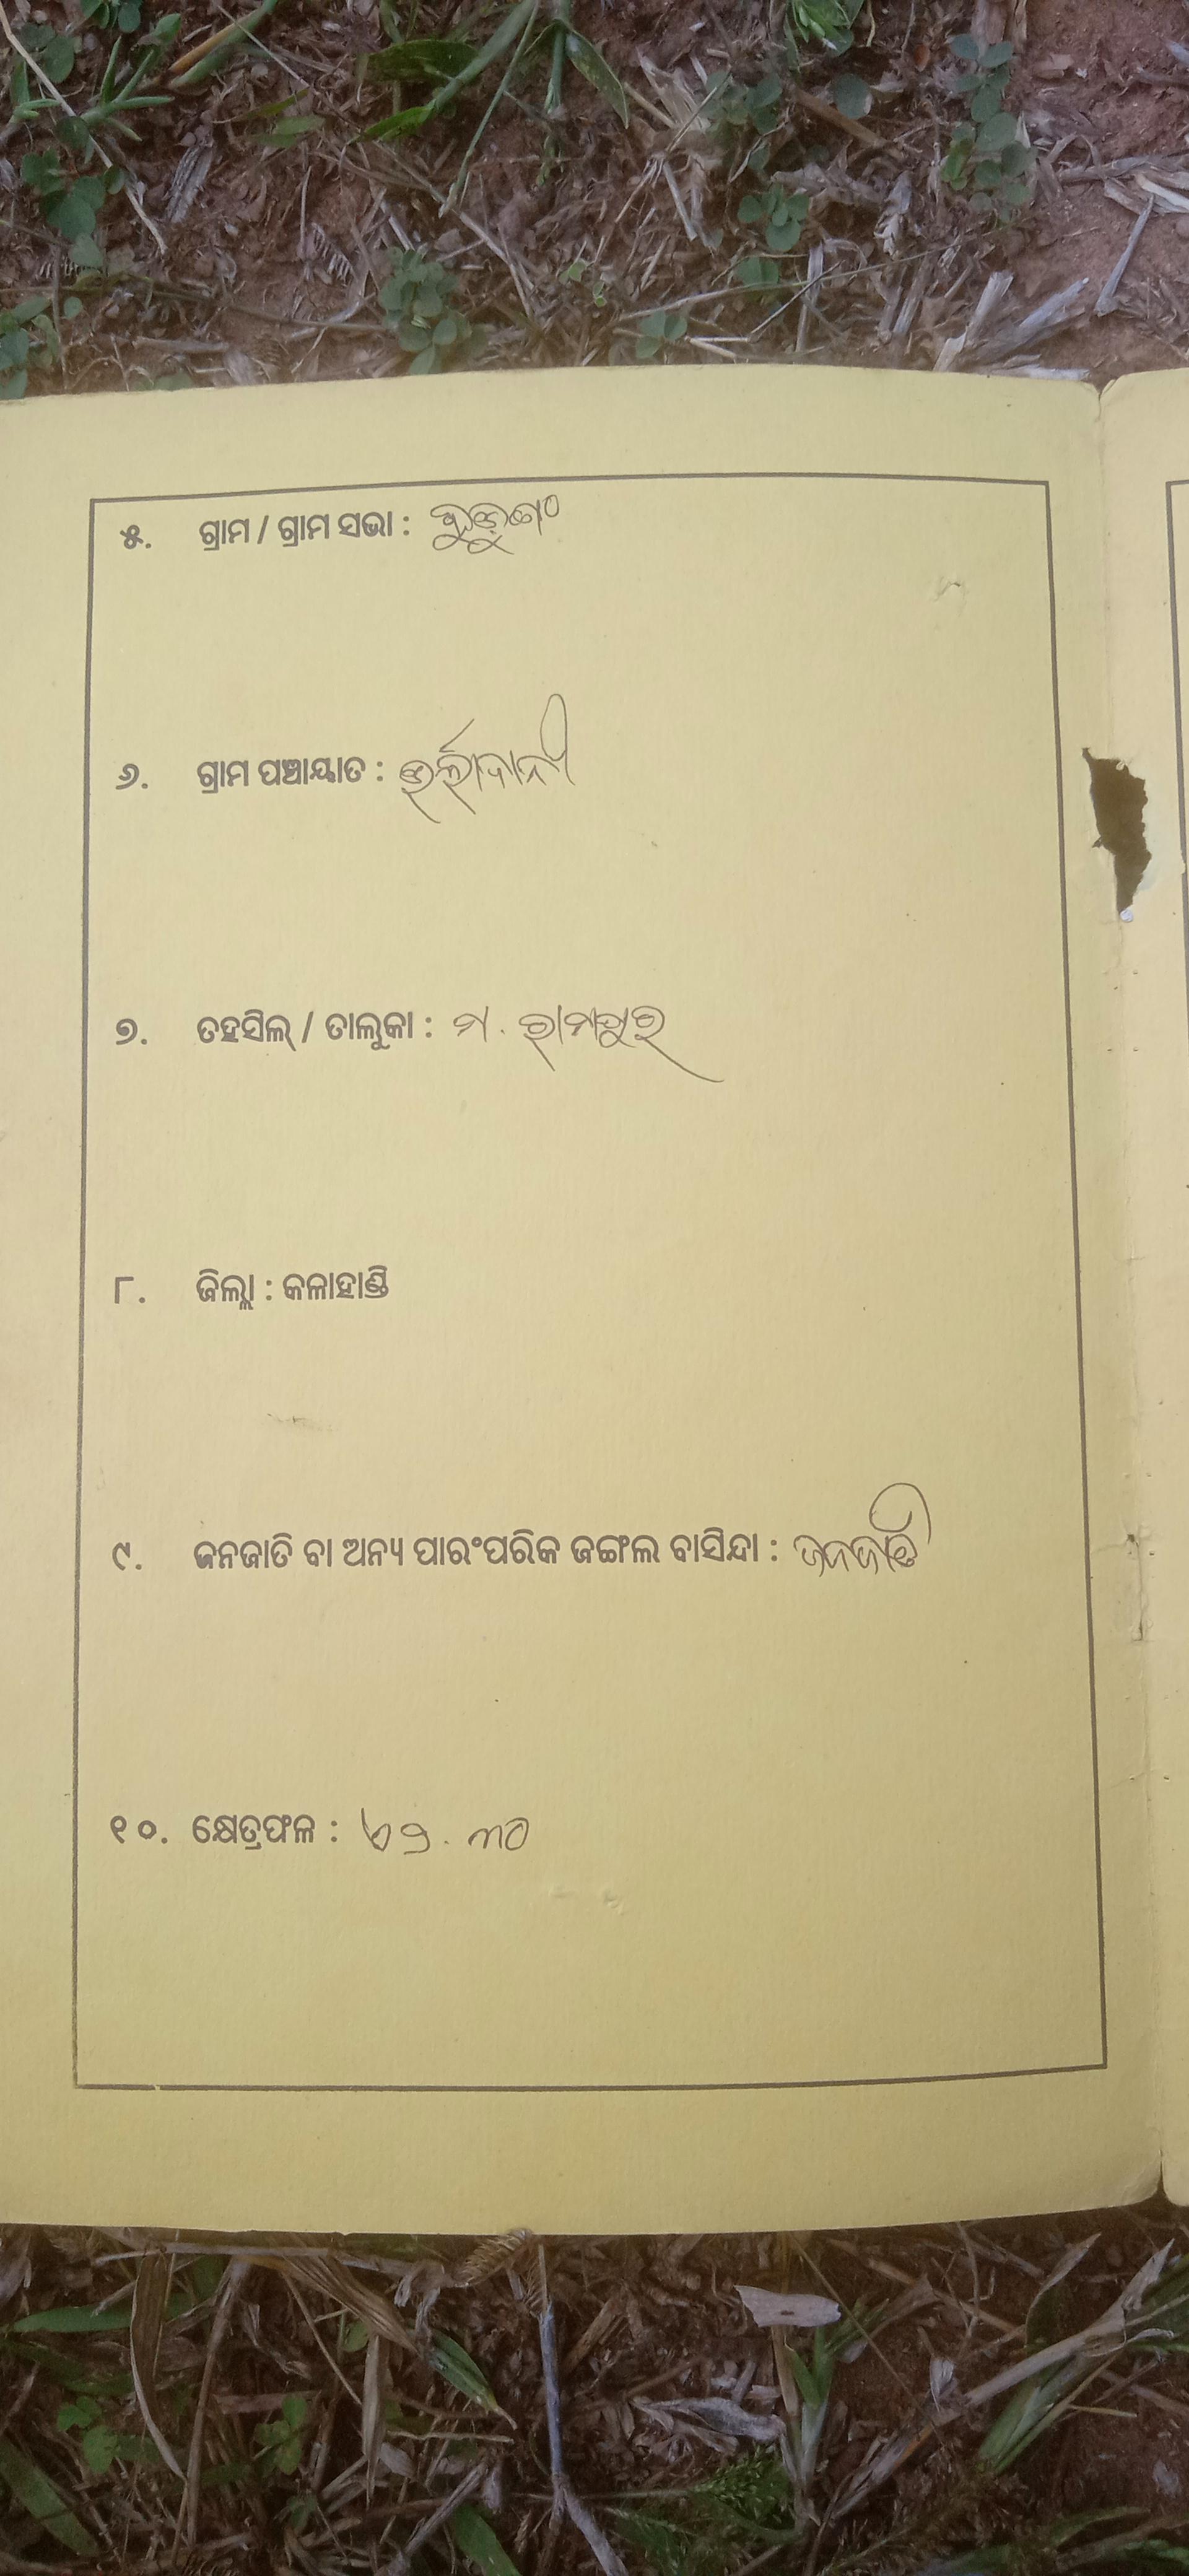 ୫. ଗ୍ରାମ / ଗ୍ରାମ ସଭା :
୬. ଗ୍ରାମ ପଞ୍ଚାୟାତ :
୭. ତହସିଲ୍ / ତାଲୁକା : ମ. ରାମପୁର
୮. ଜିଲ୍ଲା : କଳାହାଣ୍ଡି
୯. ଜନଜାତି ବା ଅନ୍ୟ ପାରଂପରିକ ଜଙ୍ଗଲ ବାସିନ୍ଦା : ଜନଜାତି
୧୦. କ୍ଷେତ୍ରଫଳ :